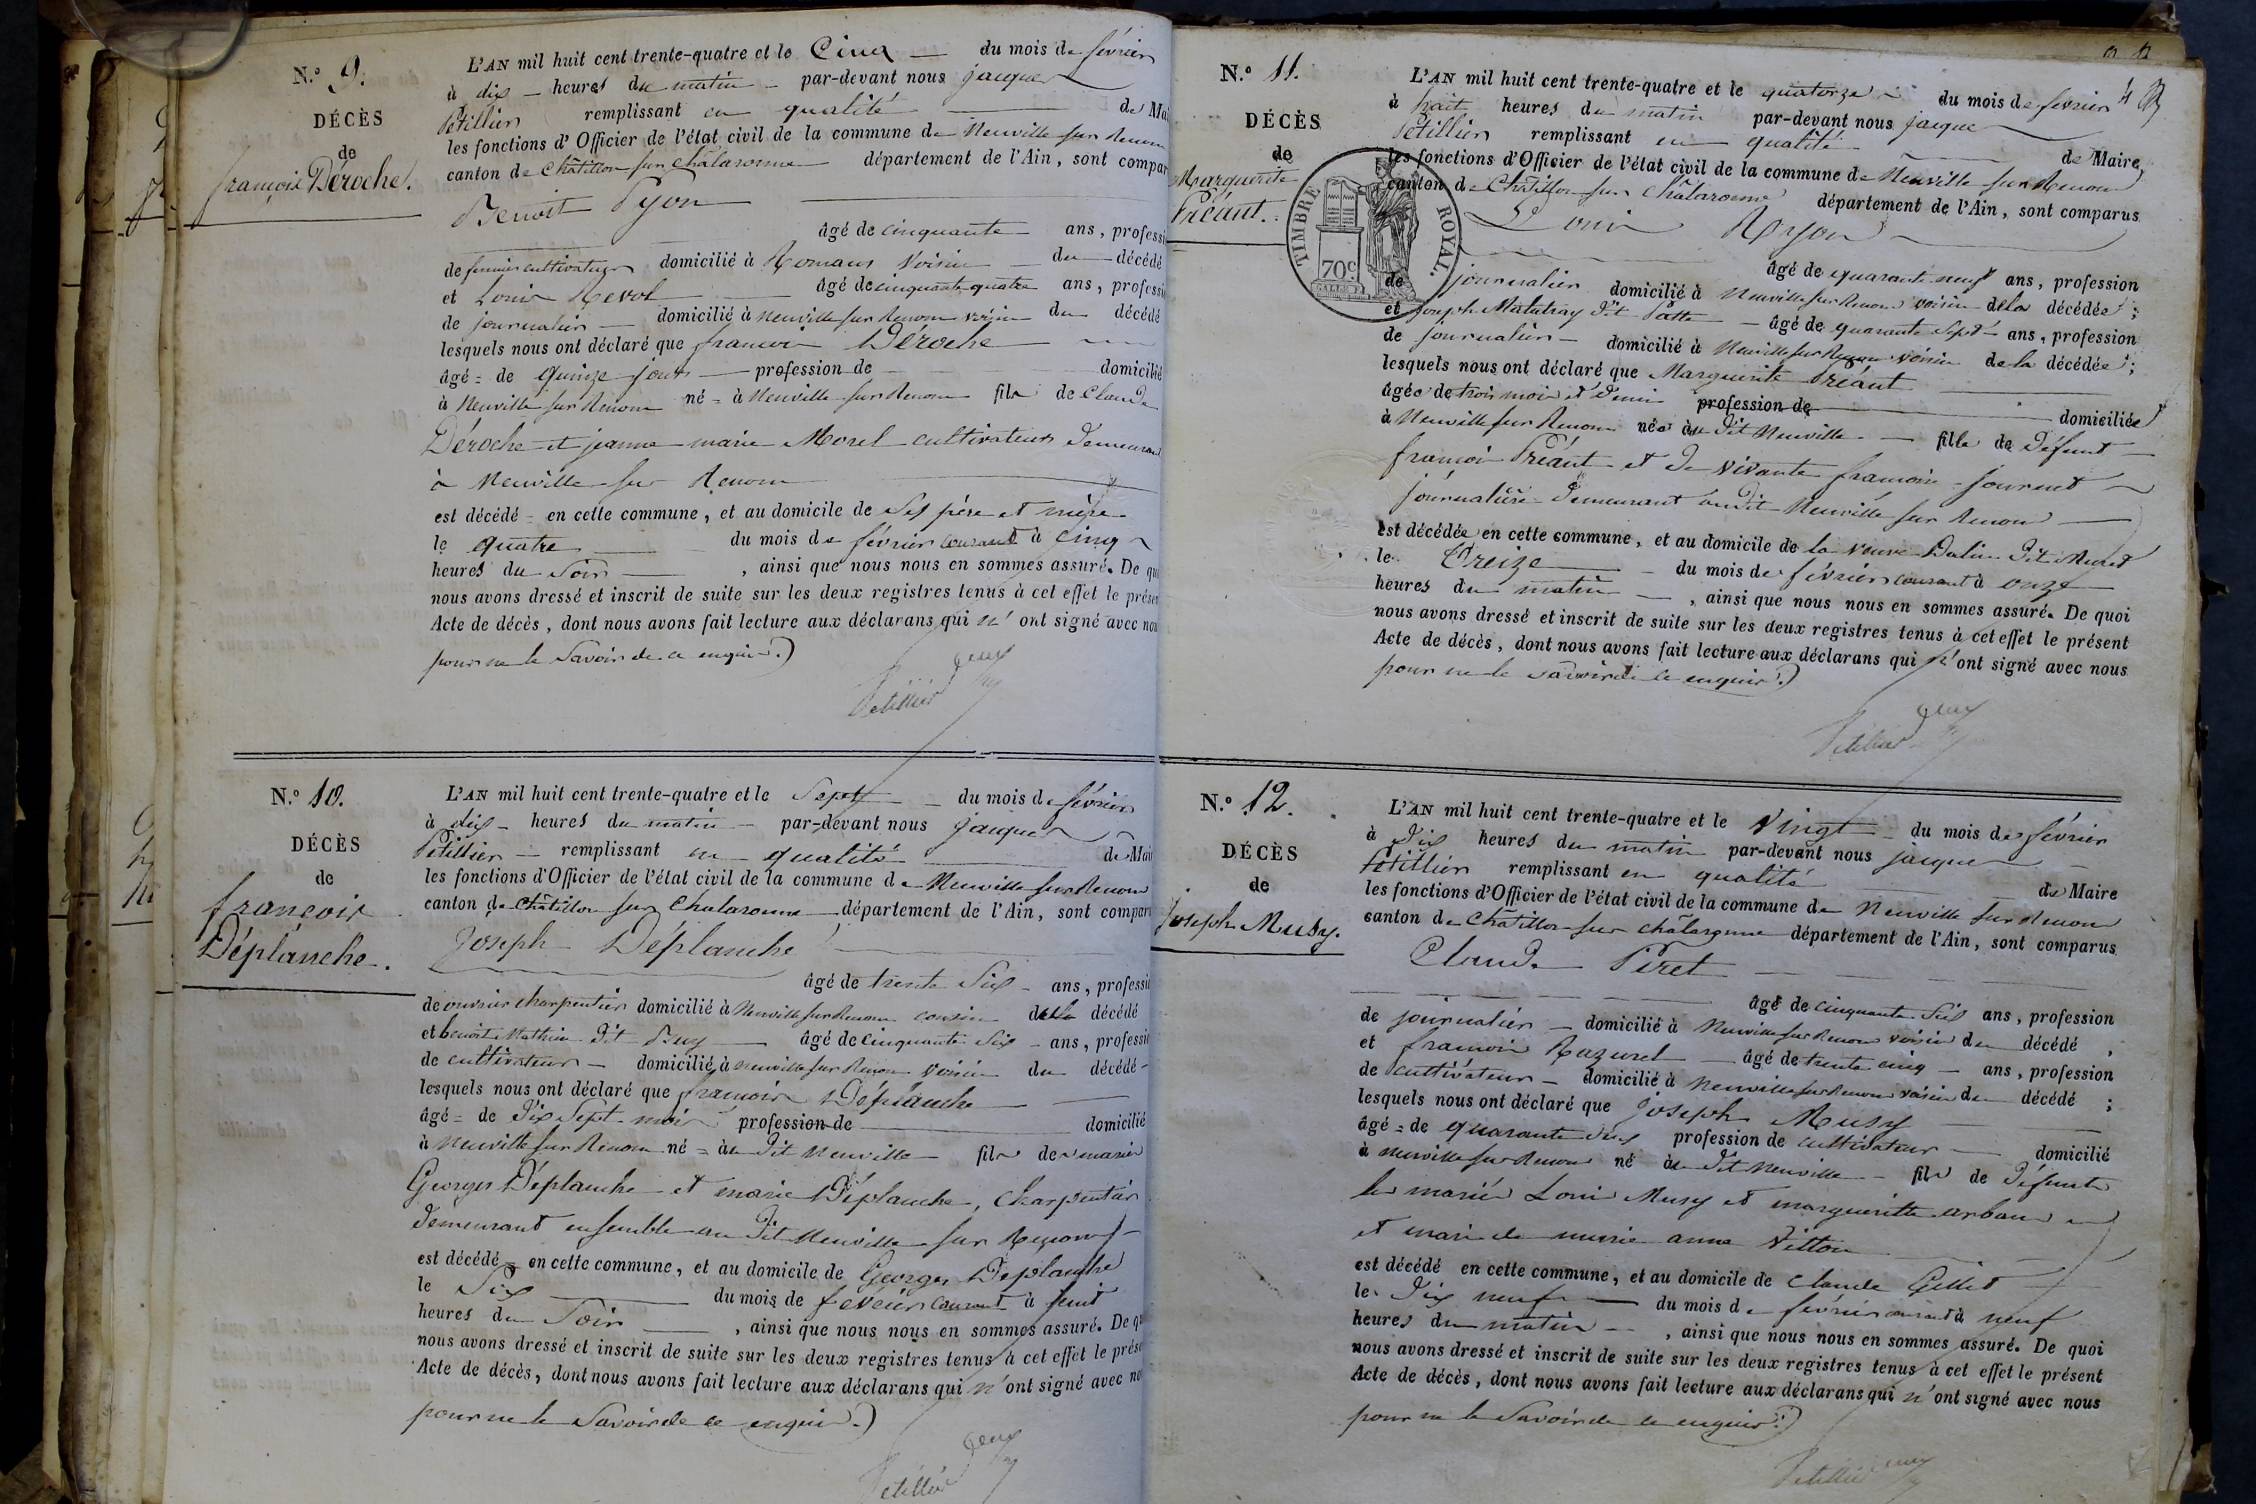 N.° 9.
DÉCÈS
de
françois Déroche.
L'AN mil huit cent trente-quatre et le Cinq du mois de février
à dix heures du matin par-devant nous jacques
Petillier remplissant en qualité de Mai
les fonctions d'Officier de l'état civil de la commune de Neuville sur Renom
canton de Châtillon sur Chalaronne département de l'Ain, sont compar
Benoit Pyon
âgé de cinquante ans, professi
de fermier cultivateur domicilié à Romans voisin du décédé
et Louis Revol âgé de cinquante quatre ans, professi
de journalier domicilié à Neuville sur Renom voisin du décédé
lesquels nous ont déclaré que francois Déroche
âgé = de quinze jours profession de domicilié
à Neuville sur Renom né = à Neuville sur Renom fils de Claude
Déroche et jeanne marie Morel cultivateurs demeurant
à Neuville sur Renom
est décédé = en cette commune, et au domicile de ses père et mère
le quatre du mois de février courant à cinq
heures du soir , ainsi que nous nous en sommes assuré. De qu
nous avons dressé et inscrit de suite sur les deux registres tenus à cet effet le présen
Acte de décès, dont nous avons fait lecture aux déclarans qui n'ont signé avec nou
pour ne le savoir de ce enquis.)
Petillier
N.° 10.
DÉCÈS
de
françois
Déplanche.
L'AN mil huit cent trente-quatre et le Sept du mois de février
à dix heures du matin par-devant nous jacques
Petillier remplissant en qualité de Mai
les fonctions d'Officier de l'état civil de la commune de Neuville sur Renom
canton de Châtillon sur Chalaronne département de l'Ain, sont compar
Joseph Déplanche
âgé de trente six ans, professi
de ouvrier charpentier domicilié à Neuville sur Renom cousin décédé
et benoit Mathieu dit Buy âgé de cinquante six ans, professi
de cultivateur domicilié à neuville sur Renom voisin du décédé
lesquels nous ont déclaré que françois Déplanche
âgé = de dix sept mois profession de domicilié
à Neuville sur Renom né = au dit Neuville fils de mariés
Georges Déplanche et marie Déplanche, charpentier
demeurant ensemble au dit Neuville sur Renom
est décédé = en cette commune, et au domicile de Georges Déplanche
le Six du mois de fevrier courant à huit
heures du Soir , ainsi que nous nous en sommes assuré. De qu
nous avons dressé et inscrit de suite sur les deux registres tenus à cet effet le prése
Acte de décès, dont nous avons fait lecture aux déclarans qui n'ont signé avec no
pour ne le savoir de ce enquis.)
Petillier
N.° 11.
DÉCÈS
de
Marguerite
Préant.
TIMBRE ROYAL.
70c
L'AN mil huit cent trente-quatre et le quatorze du mois de fevrier
à huit heures du matin par-devant nous jacque
Petillier remplissant en qualité de Maire,
les fonctions d'Officier de l'état civil de la commune de Neuville sur Renom
canton de Châtillon sur Chalaronne département de l'Ain, sont comparus
Louis Royon
âgé de quarante neuf ans, profession
de journalier domicilié à Neuville sur Renom voisin dela décédée;
et joseph Matutray dit Patte âgé de quarante sept ans, profession
de journalier domicilié à Neuville sur Renom voisin de la décédée;
lesquels nous ont déclaré que Marguerite Préant
âgée de trois mois et demi profession de domiciliée
à Neuville sur Renom née au dit Neuville fille de défunt
francois Préant et de vivante francoise journet
journalière demeurant audit Neuville sur Renom
est décédée en cette commune, et au domicile de la veuve Dalin dit Muret
le Treize du mois de février courant à onze
heures du matin , ainsi que nous nous en sommes assuré. De quoi
nous avons dressé et inscrit de suite sur les deux registres tenus à cet effet le présent
Acte de décès, dont nous avons fait lecture aux déclarans qui n'ont signé avec nous
pour ne le savoir de ce enquis.)
Petillier
N.° 12.
DÉCÈS
de
Joseph Musy.
L'AN mil huit cent trente-quatre et le Vingt du mois de février
à dix heures du matin par-devant nous jacque
Petillier remplissant en qualité de Maire
les fonctions d'Officier de l'état civil de la commune de Neuville sur Renom
canton de Châtillon sur chalaronne département de l'Ain, sont comparus
Claude Piret
âgé de cinquante six ans, profession
de journalier domicilié à Neuville sur Renom voisin du décédé
et francois Razurel âgé de trente cinq ans, profession
de cultivateur domicilié à Neuville sur Renom voisin du décédé;
lesquels nous ont déclaré que joseph Musy
âgé = de quarante profession de cultivateur domicilié
à neuville sur Renom né au dit Neuville fils de défunts
les mariés Louis Musy et marguerite arbau
et mari de marie anne Vitton
est décédé en cette commune, et au domicile de Claude Gillet
le dix neuf du mois de février courant à neuf
heures du matin , ainsi que nous nous en sommes assuré. De quoi
nous avons dressé et inscrit de suite sur les deux registres tenus à cet effet le présent
Acte de décès, dont nous avons fait lecture aux déclarans qui n'ont signé avec nous
pour ne le savoir de ce enquis.)
Petillier